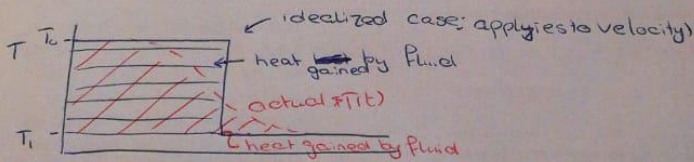 idealized case: applyies to velocity)
T T₀
heat gained by fluid
actual T(t)
T₁
heat gained by fluid